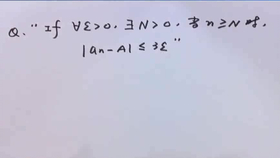 Q. "If ∀ε>0, ∃N>0, 当 n≥N 时,
|an-A| ≤ 3ε"